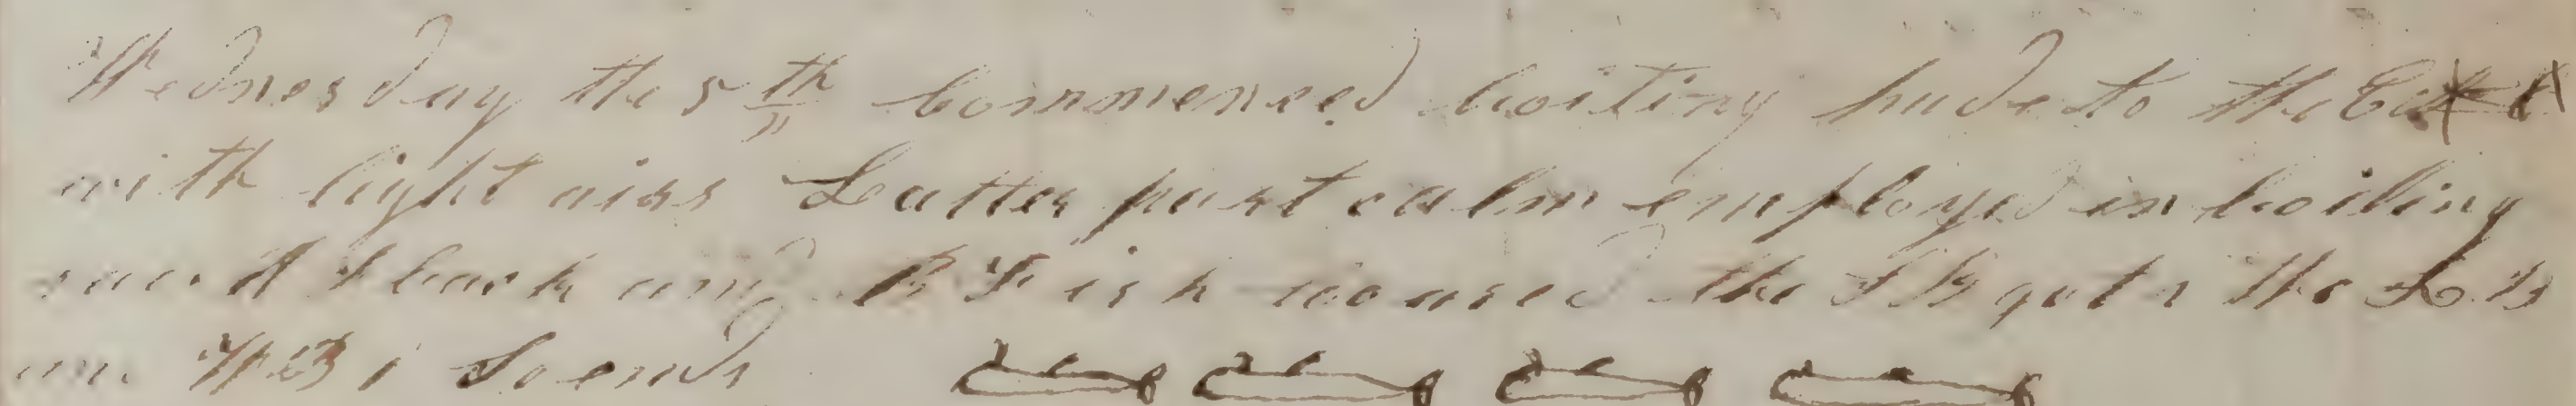 Wednesday the 5th Commenced boiling hede to the
with light airs Latter part calm employed in boiling
and B Fish the S B got 2 the L B
W B 1 So ends